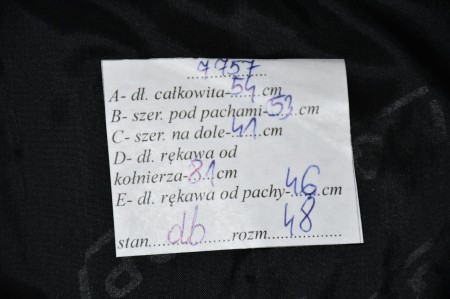 7757
A- dł. całkowita-54.cm
B- szer. pod pachami-53.cm
C- szer. na dole-41.cm
D- dł. rękawa od
kołnierza-81cm
E- dł. rękawa od pachy-46.cm
stan......db......rozm....48......